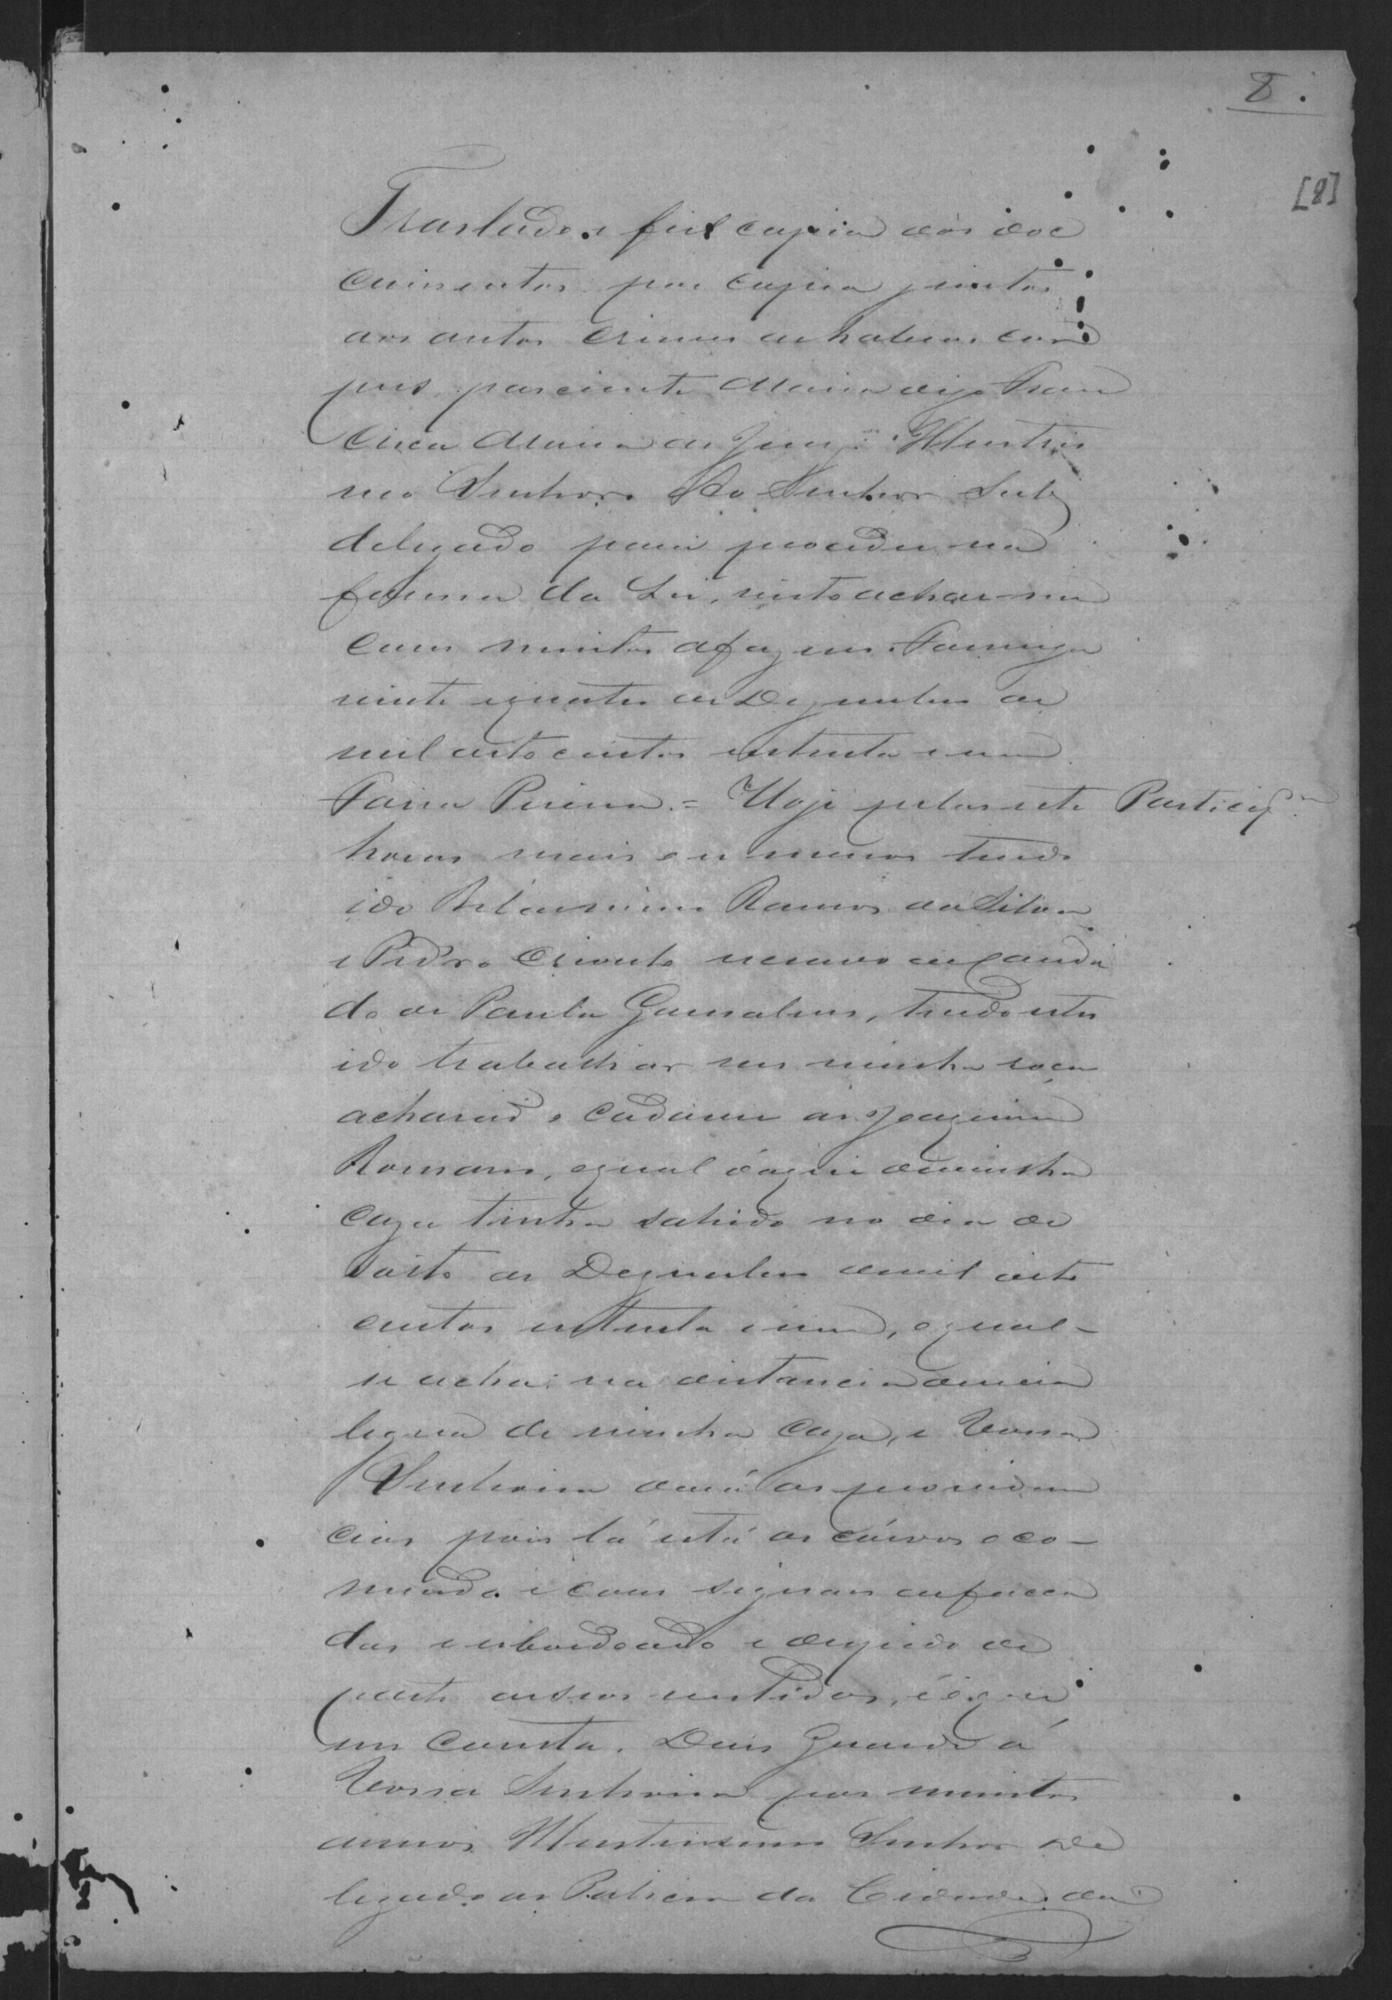 8.
[8]
Traslado e fiel copia dos doc
cumentos por copia juntos
aos autos crimes de habeas cor
pus, paciente Maria digo Fran
cisca Maria de Jesus: Illustris
mo Senhor. Ao Senhor Sub
delegado para proceder na
forma da Lei, visto achar-me
com muitos afazeres.
vinte e quatro de Dezembro de
mil oito centos e setenta e um
Faria Pereira. = Hoje pelas sete Particip.am
horas mais ou menos tendo
ido Ramos da Silva
e Pedro Crioulo
do de Paula Gonsalves, tendo estes
ido trabalhar em minha roça
acharão o cadaver de Joaquim
Romano, o qual d'aqui de minha
caza tinha sahido no dia de
soito de Dezembro de mil oito
centos e setenta e um, o qual
se acha na distancia de meia
legua de minha caza, e Vossa
Senhoria dará as providen
cias pois lá está os córvos o co-
mendo e com signaes de facca
das e esbordoado e despido de
parte de seus vestidos, é o que
me consta. Deus Guarde á
Vossa Senhoria por muitos
annos Illustrissimo Senhor De
legado de Policia da Cidade da